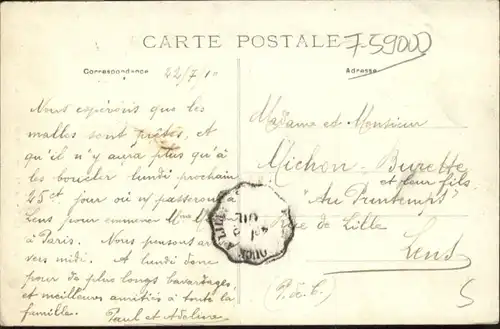 CARTE POSTALE
7-59000
Correspondance 22/7/10
Adresse
Nous espérons que les
malles sont prêtes, et
qu'il n'y aura plus qu'à
les boucler lundi prochain
25 ct jour où n/ passerons à
Lens pour emmener Mme
à Paris. Nous pensons
vers midi. A lundi donc
pour de plus longs bavardages,
et meilleures amitiés à toute la
famille. Paul et Adeline
Madame et Monsieur
Michon-Burette
et leur fils
"Au Printemps"
Rue de Lille
Lens
(P. d. C.)
5